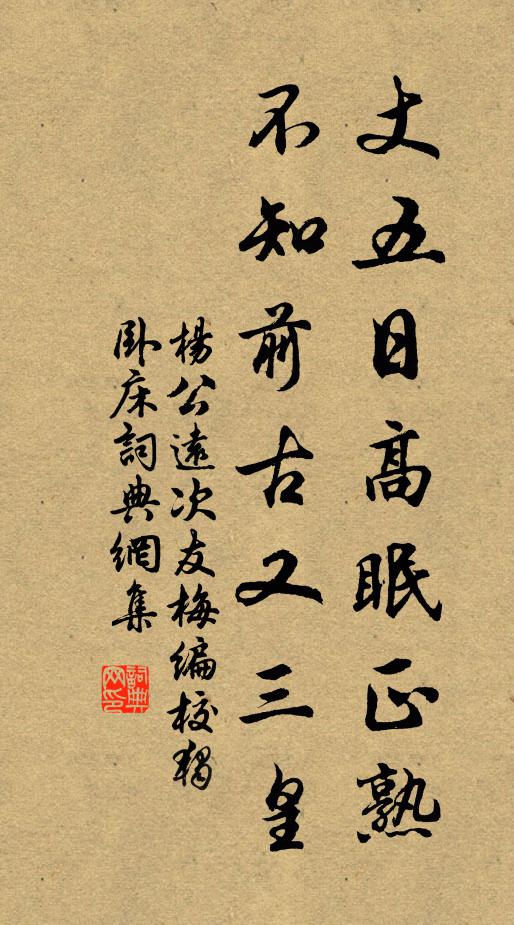 丈五日高眠正熟
不知前古又三皇
楊公遠次友梅編校獨
臥床詞典網集
詞典网印